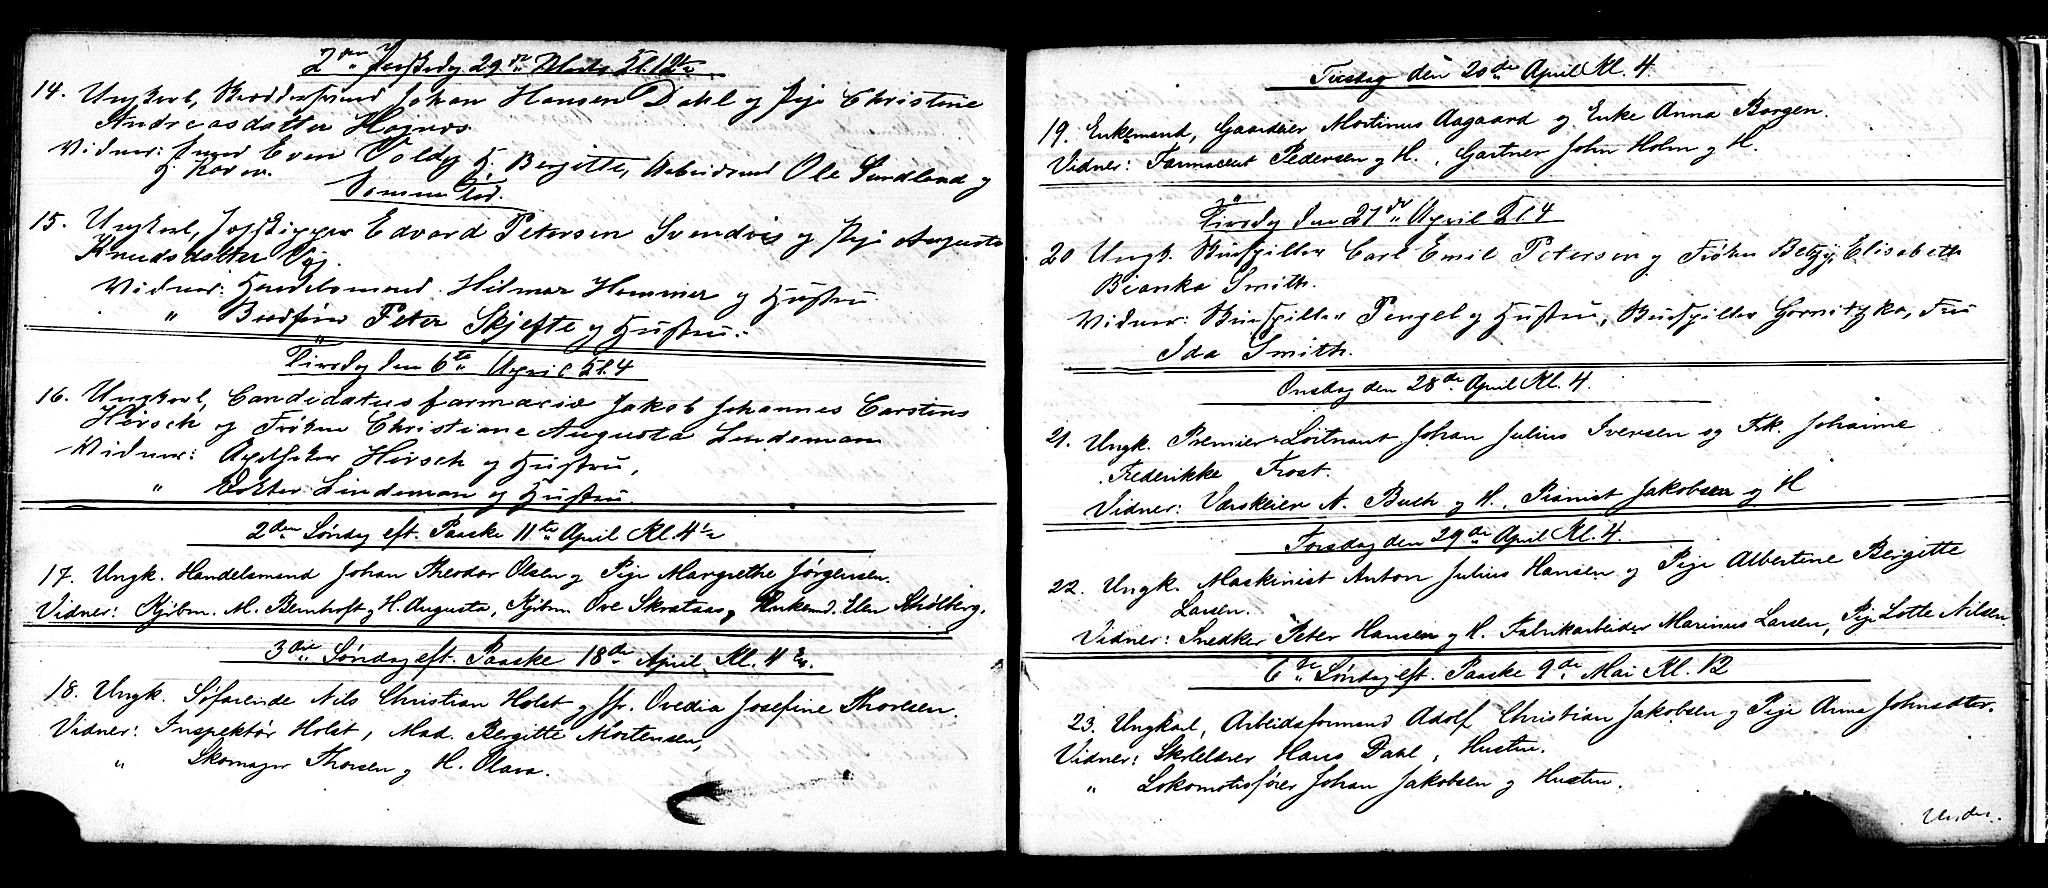 2den Paaskedag 29de Marts Kl. 12
14. Ungkarl, Johan Hansen Dahl og Pige Christine
Andreasdatter Hagnæs
Vidner: Even Volden og H. Bergitte, Arbeidsmd Ole Sundland og
H. Karen.
Samme Tid.
15. Ungkarl, Edvard Petersen Svendvig og Pige Augusta
Knudsdatter
Vidner: Handelsmand Hilmar Hammer og Hustru
" Peter Skjefte og Hustru.
Tirsdag den 6te April Kl. 4
16. Ungkarl, Candidatus farmaciæ Jakob Johannes Carstens
Hirsch og Frøken Christiane Augusta Lindeman
Vidner: Apotheker Hirsch og Hustru,
" Doktor Lindeman og Hustru.
2den Søndag eft. Paaske 11te April Kl. 4½
17. Ungk. Handelsmand Johan Theodor Olsen og Pige Margrethe Jørgensen.
Vidner: Kjøbm. M. Bernhoft og H. Augusta, Kjøbm. Ove Skrataas, Enkemd. Stolberg.
3die Søndag eft. Paaske 18de April Kl. 4 ¾.
18. Ungk. Søfarende Nils Christian Holst og Ovedia Josefine Thoresen.
Vidner: Inspektør Holst, Mad. Bergitte Mortensen,
" Skomager Thoresen og H. Olava.
Tirsdag den 20de April Kl. 4
19. Enkemand, Gaardeier Mortinus Aagaard og Enke Anna Borgen.
Vidner: Farmaceut Pedersen og H., Gartner John Holm og H.
Tirsdag den 27de April Kl 4
20 Ungk. Carl Emil Petersen og Frøken Betzy Elisabeth
Bianka Smith.
Vidner: Pengel og Hustru, Gornitzka, Fru
Ida Smith.
Onsdag den 28de April Kl. 4.
21. Ungk. Premier-Løitnant Johan Julius Iversen og Frk. Johanne
Frederikke Frost.
Vidner: Værkeier A. Buch og H., Pianist Jakobsen og H
Torsdag den 29de April Kl. 4.
22. Ungk. Maskinist Anton Julius Hansen og Pige Albertine Bergitte
Larsen.
Vidner: Snedker Peter Hansen og H. Fabrikarbeider Marinus Larsen, Pige Lotte Nilsen
6te Søndag eft. Paaske 9de Mai Kl. 12
23. Ungkarl, Arbeidsformand Adolf Christian Jakobsen og Pige Anna Johnsdter.
Vidner: Skolelærer Hans Dahl, Hustru.
" Lokomotivfører Johan Jakobsen og Hustru.